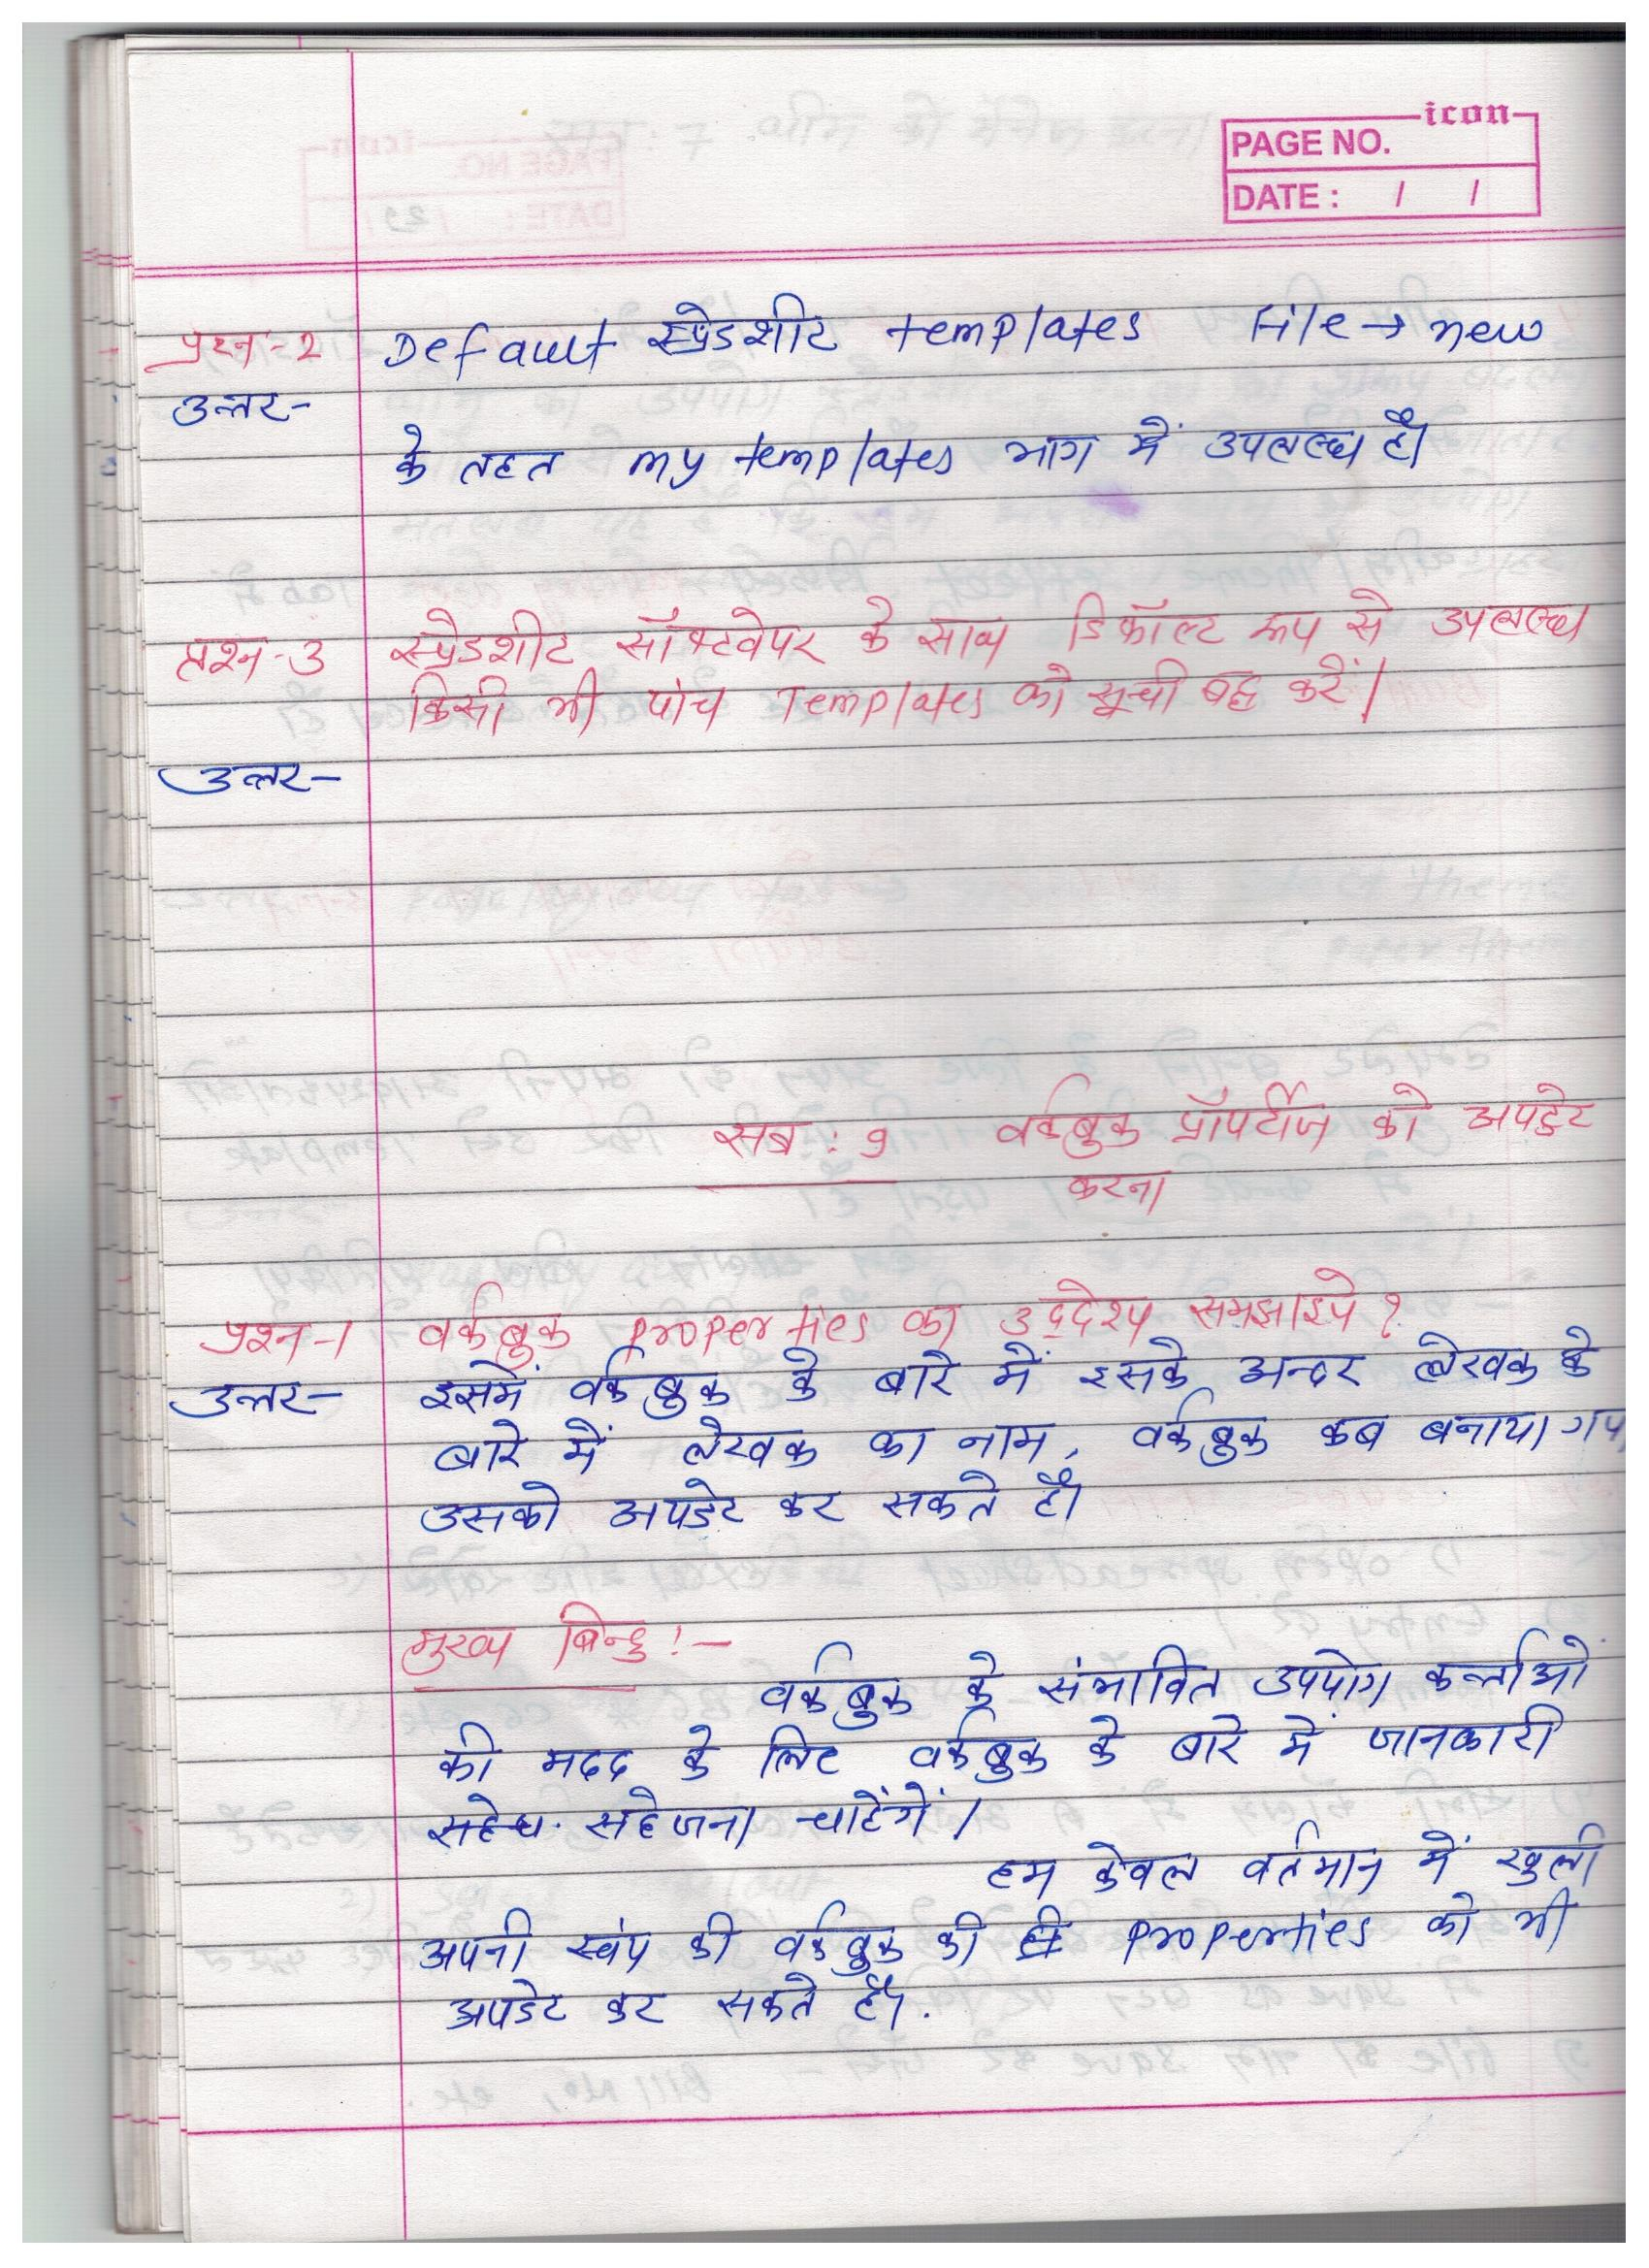 icon
PAGE NO.
DATE : / /
प्रश्न-2 Default स्प्रेडशीट templates File → new
उत्तर-
के तहत my templates भाग में उपलब्ध है।
प्रश्न-3 स्प्रेडशीट सॉफ्टवेयर के साथ डिफॉल्ट रूप से उपलब्ध
किसी भी पांच Templates को सूची बद्द करें।
उत्तर-
सब : 9 वर्कबुक प्रॉपर्टीज को अपडेट
करना
प्रश्न-1 वर्कबुक properties का उद्देश्य समझाइये ?
उत्तर- इसमें वर्कबुक के बारे में इसके अन्दर लेखक के
बारे में लेखक का नाम, वर्कबुक कब बनाया गया
उसको अपडेट कर सकते है।
मुख्य बिन्दु :-
वर्कबुक के संभावित उपयोग कर्त्ताओं
की मदद के लिए वर्कबुक के बारे में जानकारी
सहेजना चाहेंगें।
हम केवल वर्तमान में खुली
अपनी स्वंय की वर्कबुक की properties को भी
अपडेट कर सकते है।.